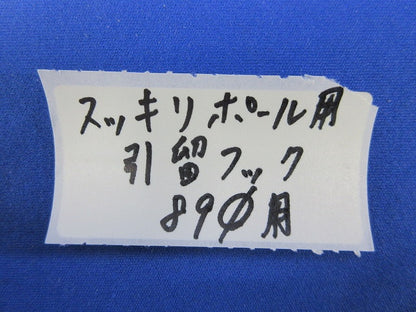 スッキリポール用
引留フック
89φ用